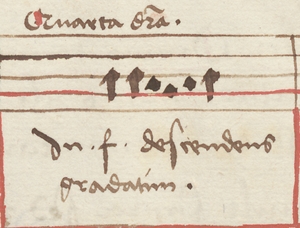 Quarta dr̃a.
In .f. descendens
gradatim.